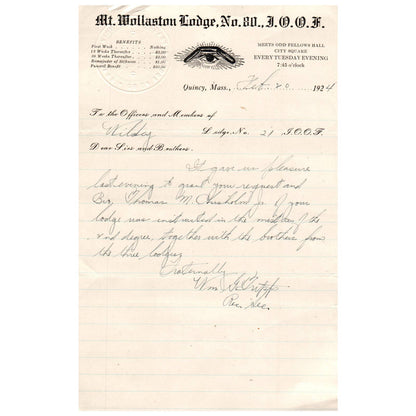 Mt. Wollaston Lodge, No. 80., I.O.O.F.
BENEFITS
First Week Nothing
Funeral Benefit
MEETS ODD FELLOWS HALL
CITY SQUARE
EVERY TUESDAY EVENING
7:45 o'clock
Quincy, Mass., Feb. 20 1924
To the Officers and Members of
Wildey Lodge No. 21 I.O.O.F.
Dear Sirs and Brothers.
It gave us pleasure
last evening to grant your request and
Bro. Thomas M. Chisholm Jr. of your
lodge was instructed in the mastery of the
2nd degree, together with the brothers from
the three lodges
Fraternally
Wm
Rec. Sec.